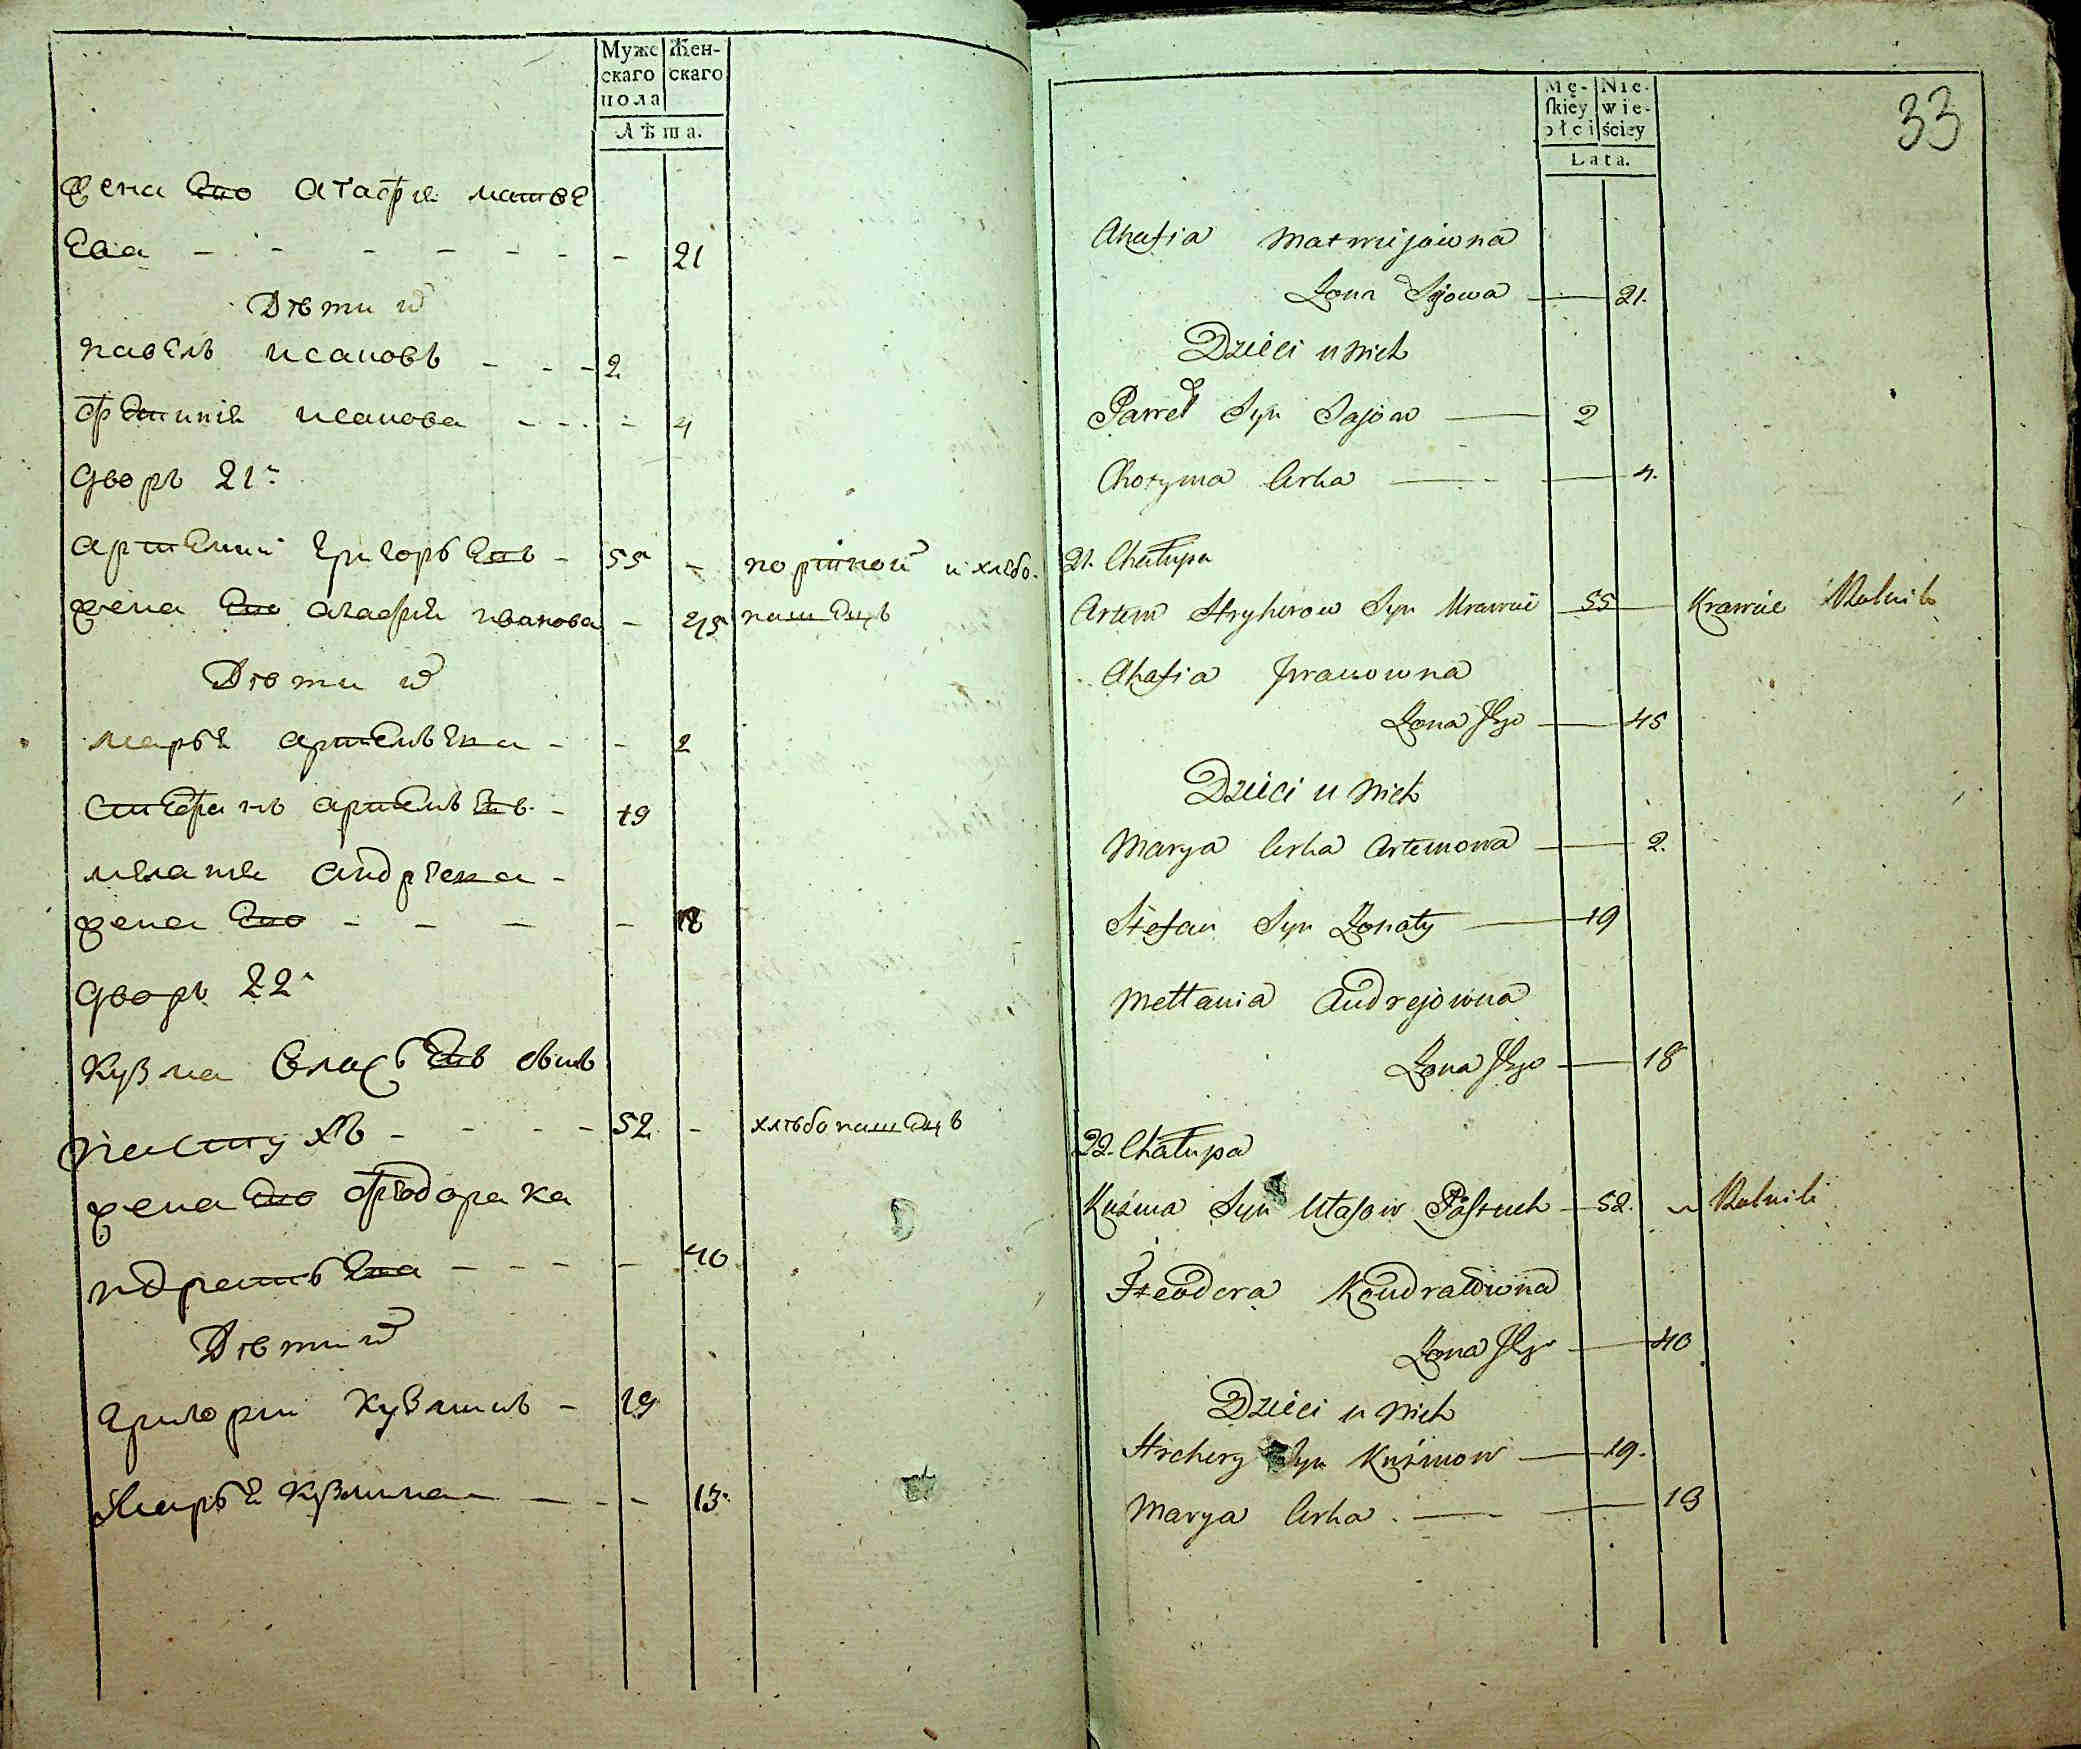 Муже
скаго
пола
Жен-
скаго
Лѣта.
жена Его агафія матве
Ева - - - - - - - 21
Дѣти ихъ
павелъ исаковъ - - - 2
фетинія исакова - - - - 4
дворъ 21й
артемий григорьевъ - 55 - портной и хлебо.
жена Его агафия иванова - 45 пашецъ
Дѣти ихъ
марья артемьева - - 2
степанъ артемьевъ - 19
меланья андреева -
жена Его - - - - 18
дворъ 22й
кузма власьевъ сынъ
пастухъ - - - - 52 - хлѣбопашецъ
жена Его федора ка
ндратьева - - - - 40
Дѣти ихъ
григории кузминъ - 19
Марья кузмина - - - 13.
Mę-
skiey
płci
Nie-
wie-
ściey
Lata.
33
Ahafia Matwiejowna
Zona Jego — 21.
Dzieci u nich
Paweł Syn Sajow — 2
Chotyma Crka — 4.
21. Chałupa
Artem Hryhorow Syn Krawiec 55 — Krawiec Rolnik
Ahafia Jwanowna
Zona Jego — 45
Dzieci u nich
Marya Crka Artemowa — 2.
Stefan Syn Zonaty — 19
Mellania Andrejowna
Zona Jego — 18
22. Chałupa
Kuźma Syn Ułasow Pastuch — 52. Rolnik
Fteodora Kondratowna
Zona Jego — 40
Dzieci u nich
Hrehory Syn Kuźmow — 19.
Marya Crka — 13